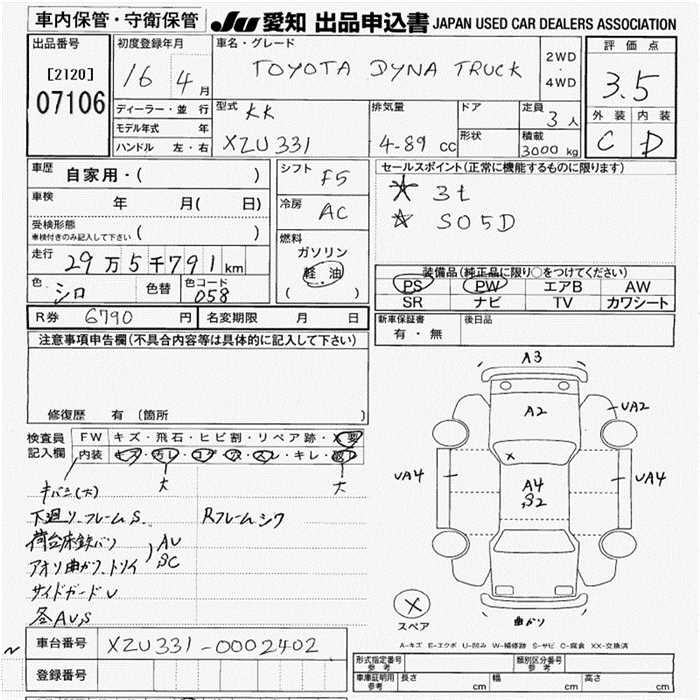 車内保管・守衛保管 JU 愛知 出品申込書 JAPAN USED CAR DEALERS ASSOCIATION
出品番号
[2120]
07106
初度登録年月
16 4月
ディーラー・並行
モデル年式 年
ハンドル 左・右
車名・グレード
TOYOTA DYNA TRUCK
2WD
4WD
型式 KK
XZU331
排気量
4-89 cc
ドア
形状
定員
3人
積載
3000 kg
評価点
3.5
外装 内装
C D
車歴
自家用・( )
車検
年 月( 日)
受検形態
車検付きのみ記入して下さい ( )
走行
29万5千791km
色 シロ 色替 色コード 058
シフト F5
冷房 AC
燃料
ガソリン
軽油
( )
R券 6790 円 名変期限 月 日
セールスポイント(正常に機能するものに限ります)
3t
S05D
装備品(純正品に限り○をつけてください)
PS PW エアB AW
SR ナビ TV カワシート
新車保証書
有・無
後日品
注意事項申告欄(不具合内容等は具体的に記入して下さい)
修復歴 有 (箇所
検査員
記入欄
FW キズ・飛石・ヒビ割・リペア跡・X要
内装 キズ・汚レ・コゲ・穴・スレ・キレ・
大 大
キバミ(大)
下廻リ、フレームS、 Rフレームシワ
荷台床鉄バリ
アオリ曲がり、トリイ
AU
SC
サイドガードU
各AU,S
A3
A2
UA2
UA4
A4
S2
UA4
X
X
スペア
曲がり
A-キズ E-エクボ U-凹み W-補修跡 S-サビ C-腐食 XX-交換済
車台番号 XZU331-0002402
登録番号
形式指定番号
参考
類別区分番号
参考
車庫証明用
参考
長さ cm 幅 cm 高さ cm